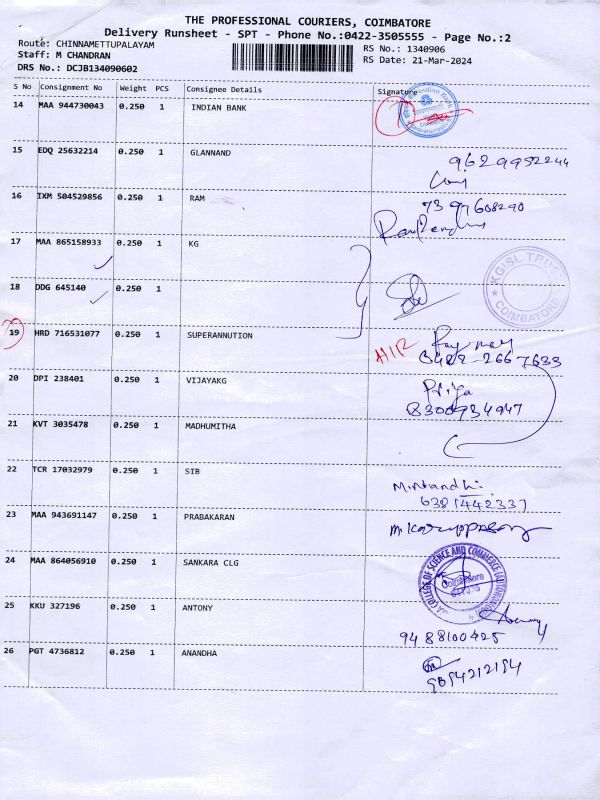 THE PROFESSIONAL COURIERS, COIMBATORE
Delivery Runsheet - SPT - Phone No.:0422-3505555 - Page No.:2
Route: CHINNAMETTUPALAYAM
RS No.: 1340906
Staff: M CHANDRAN
RS Date: 21-Mar-2024
DRS No.: DCJB134090602
S No Consignment No Weight PCS Consignee Details Signature
14 MAA 944730043 0.250 1 INDIAN BANK
15 EDQ 25632214 0.250 1 GLANNAND 9629952244
16 IXM 504529856 0.250 1 RAM 7397608290
17 MAA 865158933 0.250 1 KG
KGISL TRUST
COIMBATORE
18 DDG 645140 0.250 1
19 HRD 716531077 0.250 1 SUPERANNUTION
0422-2667633
20 DPI 238401 0.250 1 VIJAYAKG Priya
8300934947
21 KVT 3035478 0.250 1 MADHUMITHA
22 TCR 17032979 0.250 1 SIB
6381442337
23 MAA 943691147 0.250 1 PRABAKARAN
24 MAA 864056910 0.250 1 SANKARA CLG
COLLEGE OF SCIENCE AND COMMERCE (AUTONOMOUS)
Coimbatore
25 KKU 327196 0.250 1 ANTONY
9488100425
26 PGT 4736812 0.250 1 ANANDHA
9894212194